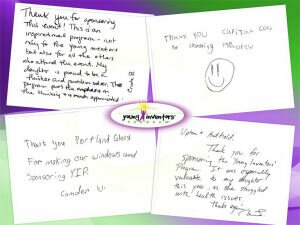 Thank you for sponsoring
this event! This is an
inspirational program - not
only for the young inventors
but also for all the others
who attend the event. My
daughter is proud to be a
thinker and problem solver. The
program puts the emphasis on
the thinking & is much appreciated!
THANK YOU CAPITAL
for
young inventors'
PROGRAM
Thank you Portland Glass
For making our windows and
Sponsoring YIP.
Camden W.
Upton & Hatfield,
Thank you for
sponsoring the Young Inventors'
Program. It was especially
valuable to my daughter
this year as she struggled
with health issues.
Thanks again,